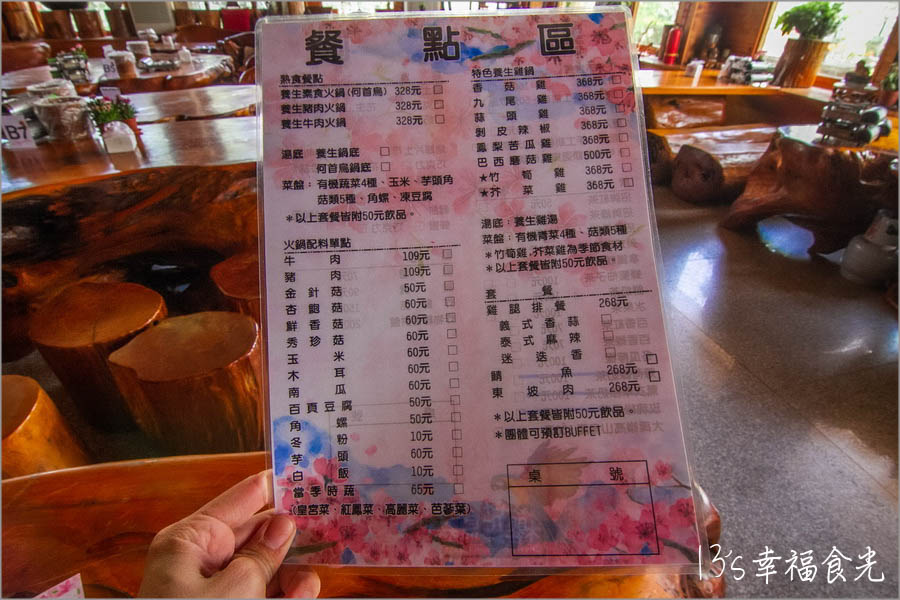 餐點區
熟食餐點
養生素食火鍋(何首烏) 328元 □
養生豬肉火鍋 328元 □
養生牛肉火鍋 328元 □
湯底 養生鍋底 □
何首烏鍋底 □
菜盤：有機蔬菜4種、玉米、芋頭角
菇類5種、角螺、凍豆腐
＊以上套餐皆附50元飲品。
火鍋配料單點
牛肉 109元 □
豬肉 109元 □
金針菇 50元 □
杏鮑菇 60元 □
鮮香菇 60元 □
秀珍菇 60元 □
玉米 60元 □
木耳 60元 □
南瓜 60元 □
百頁豆腐 50元 □
角螺 50元 □
冬粉 10元 □
芋頭 60元 □
白飯 10元 □
當季時蔬 65元 □
(皇宮菜、紅鳳菜、高麗菜、芭蔘葉)
特色養生雞鍋
香菇雞 368元 □
九尾雞 368元 □
蒜頭雞 368元 □
剝皮辣椒 368元 □
鳳梨苦瓜雞 368元 □
巴西蘑菇雞 500元 □
★竹筍雞 368元 □
★芥菜雞 368元 □
湯底：養生雞湯
菜盤：有機青菜4種、菇類5種
＊竹筍雞.芥菜雞為季節食材
＊以上套餐皆附50元飲品。
套餐
雞腿排餐 268元
義式香蒜 □
泰式麻辣 □
迷迭香 □
鯖魚 268元 □
東坡肉 268元 □
＊以上套餐皆附50元飲品。
＊團體可預訂BUFFET
桌號
B7
13's幸福食光